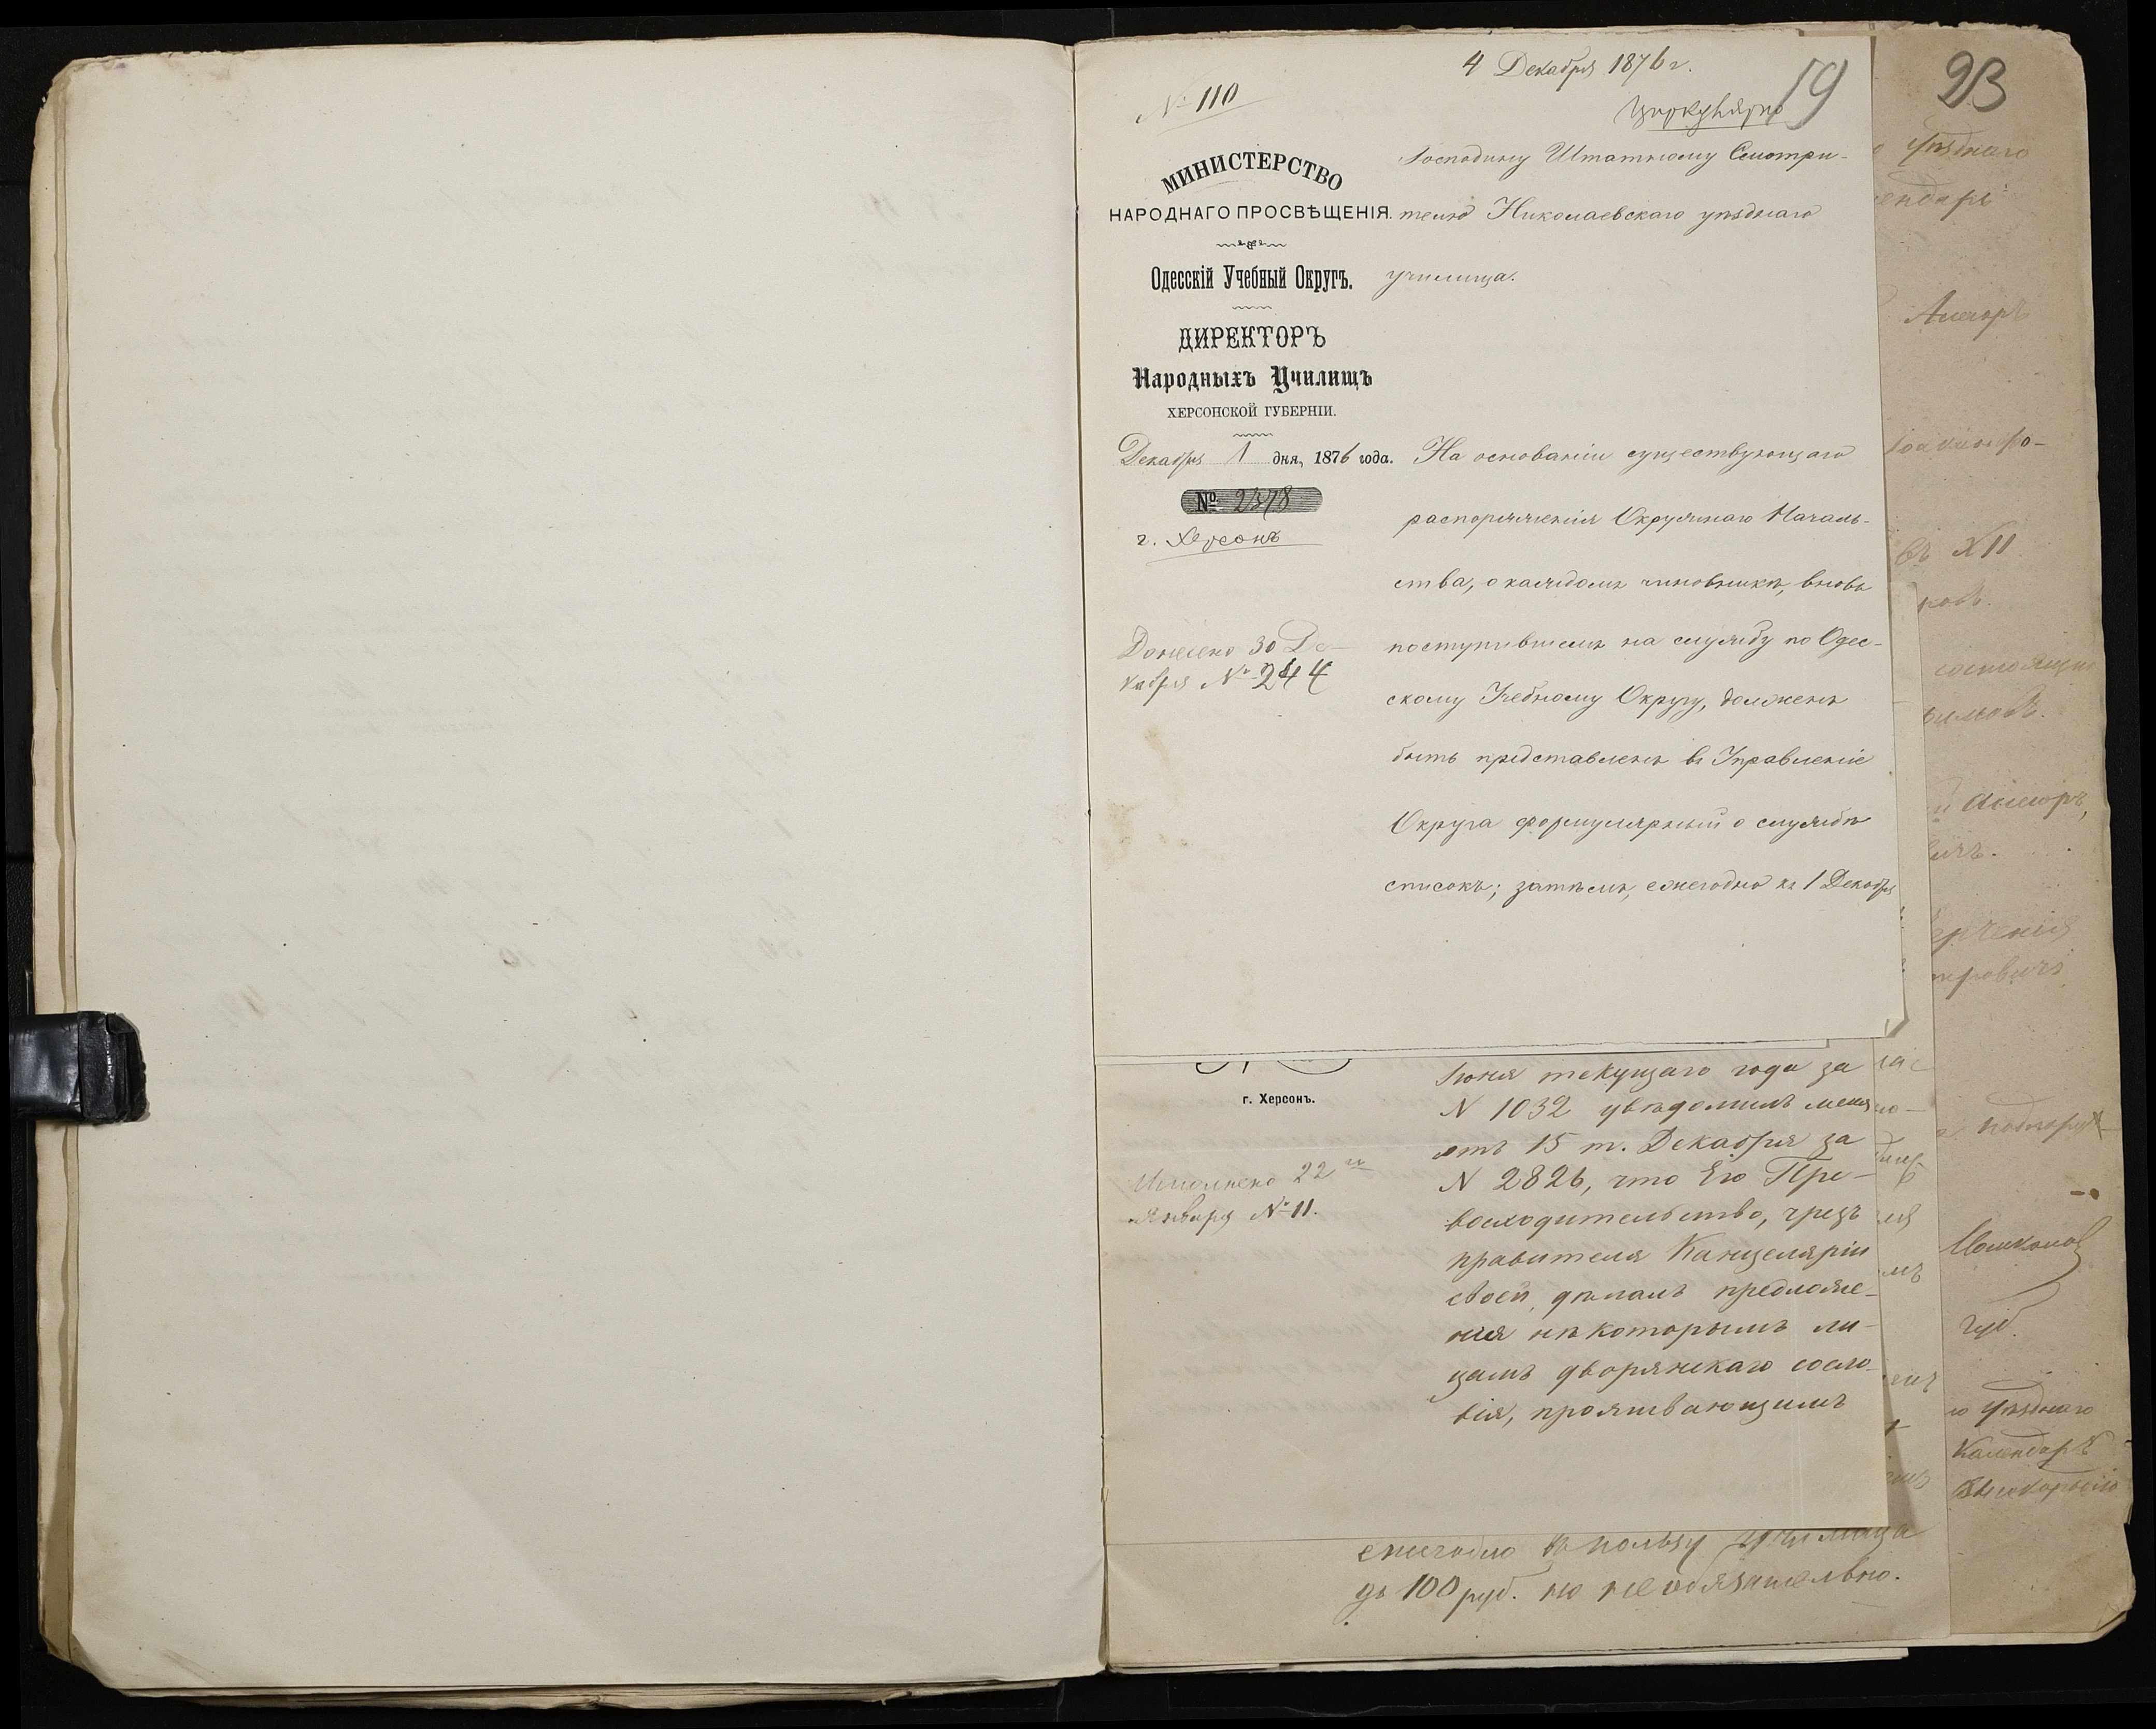 4 Декабря 1876 г.
№ 110
19
23
Циркулярно
МИНИСТЕРСТВО
НАРОДНАГО ПРОСВѢЩЕНІЯ.
Одесскій Учебный Округъ.
ДИРЕКТОРЪ
Народныхъ Училищъ
ХЕРСОНСКОЙ ГУБЕРНІИ.
Декабря 1 дня, 1876 года.
№ 2378
г. Херсонъ
Донесено 30 Де-
кабря № 244
Господину Штатному Смотри-
телю Николаевскаго уѣзднаго
училища.
На основаніи существующаго
распоряженія Окружнаго Началь-
ства, о каждомъ чиновникѣ, вновь
поступившемъ на службу по Одес-
скому Учебному Округу, долженъ
быть представленъ въ Управленіе
Округа формулярный о службѣ
списокъ; затѣмъ, ежегодно къ 1 Декабря
г. Херсонъ.
Исполнено 22 го
Января № 11.
Іюня текущаго года за
N 1032 увѣдомилъ меня
отъ 15 т. Декабря за
N 2826, что Его Пре-
восходительство, чрезъ
правителя Канцеляріи
своей, дѣлалъ предложе-
нія нѣкоторымъ ли-
цамъ дворянскаго сосло-
вія, проживающимъ
ежегодно въ пользу училища
до 100 руб. но не обязательно.
уѣзднаго
въ XII
губ.
уѣзднаго
Календарь